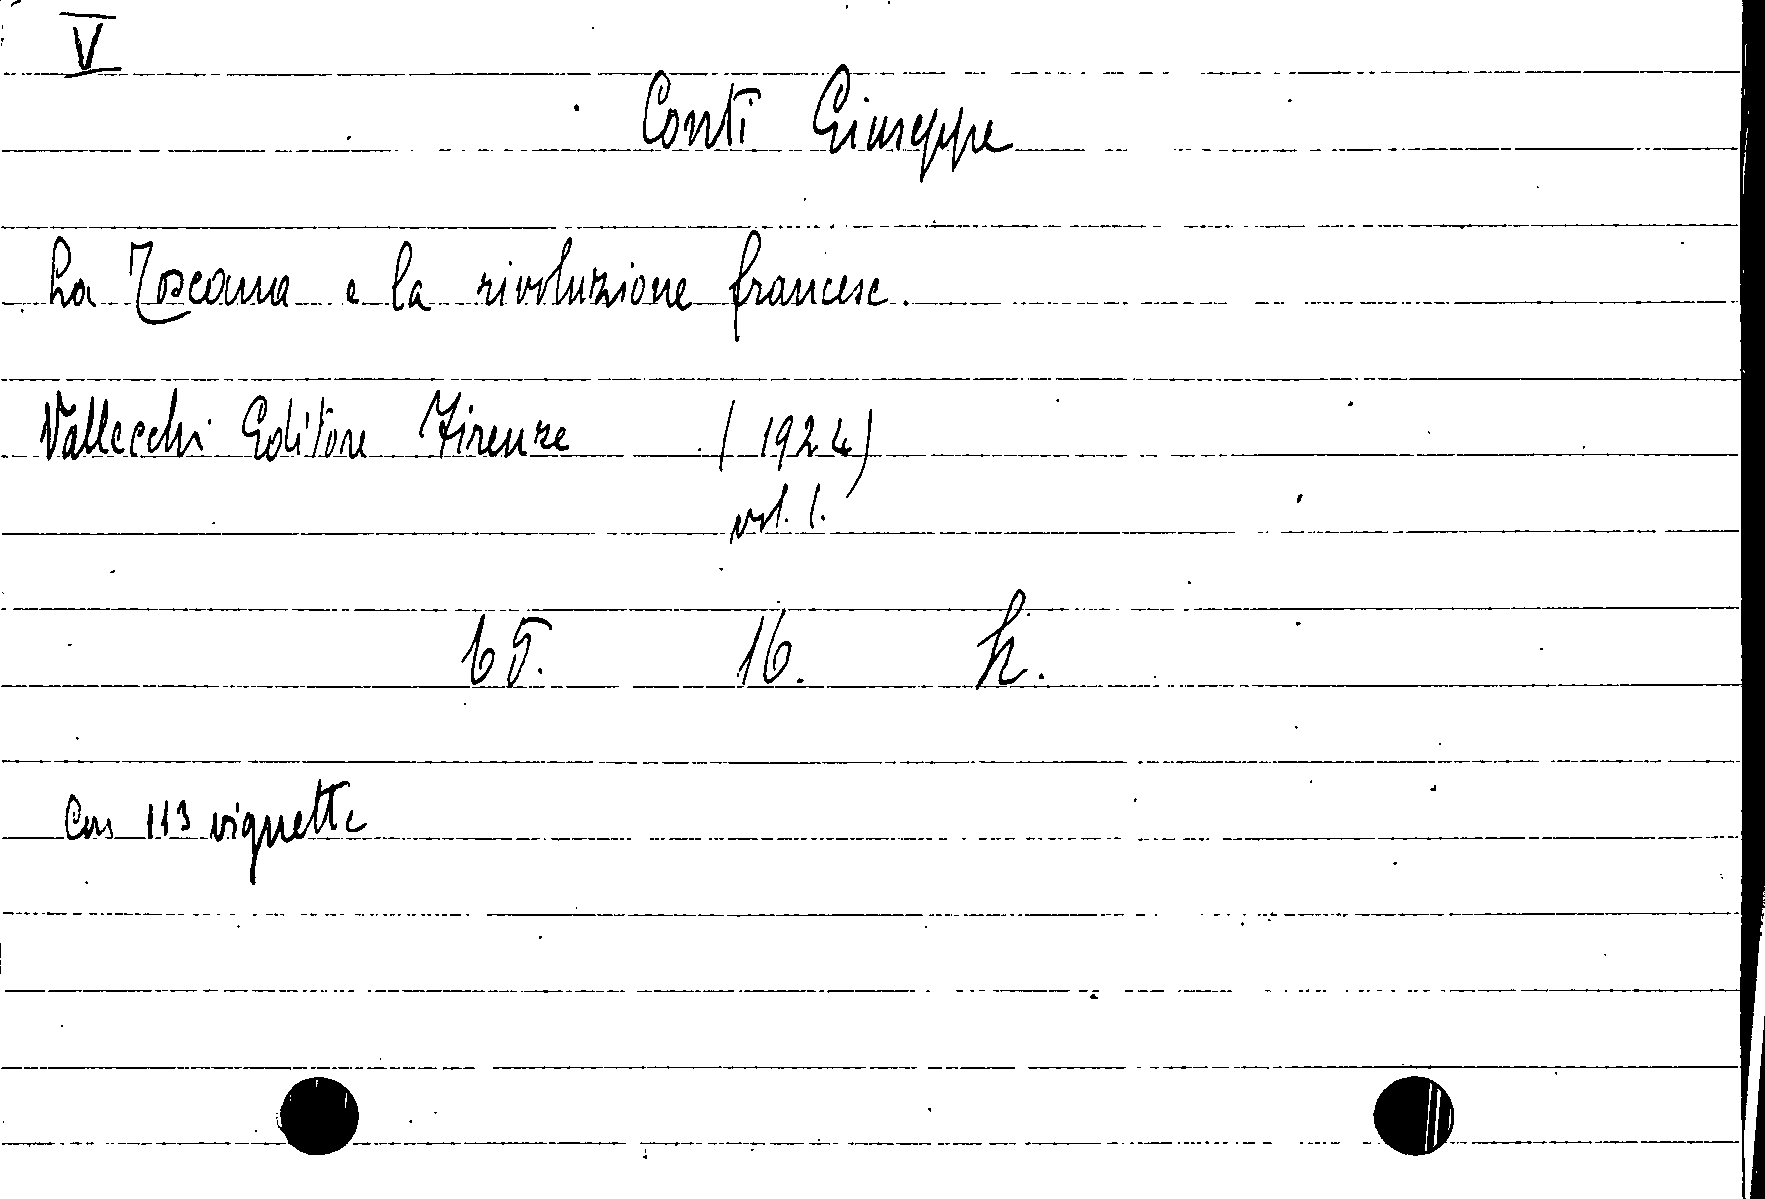 V
Conti Giuseppe
La Toscana e la rivoluzione francese.
Vallecchi Editore Firenze (1924)
vol. 1.
65. 16. h.
Con 113 vignette